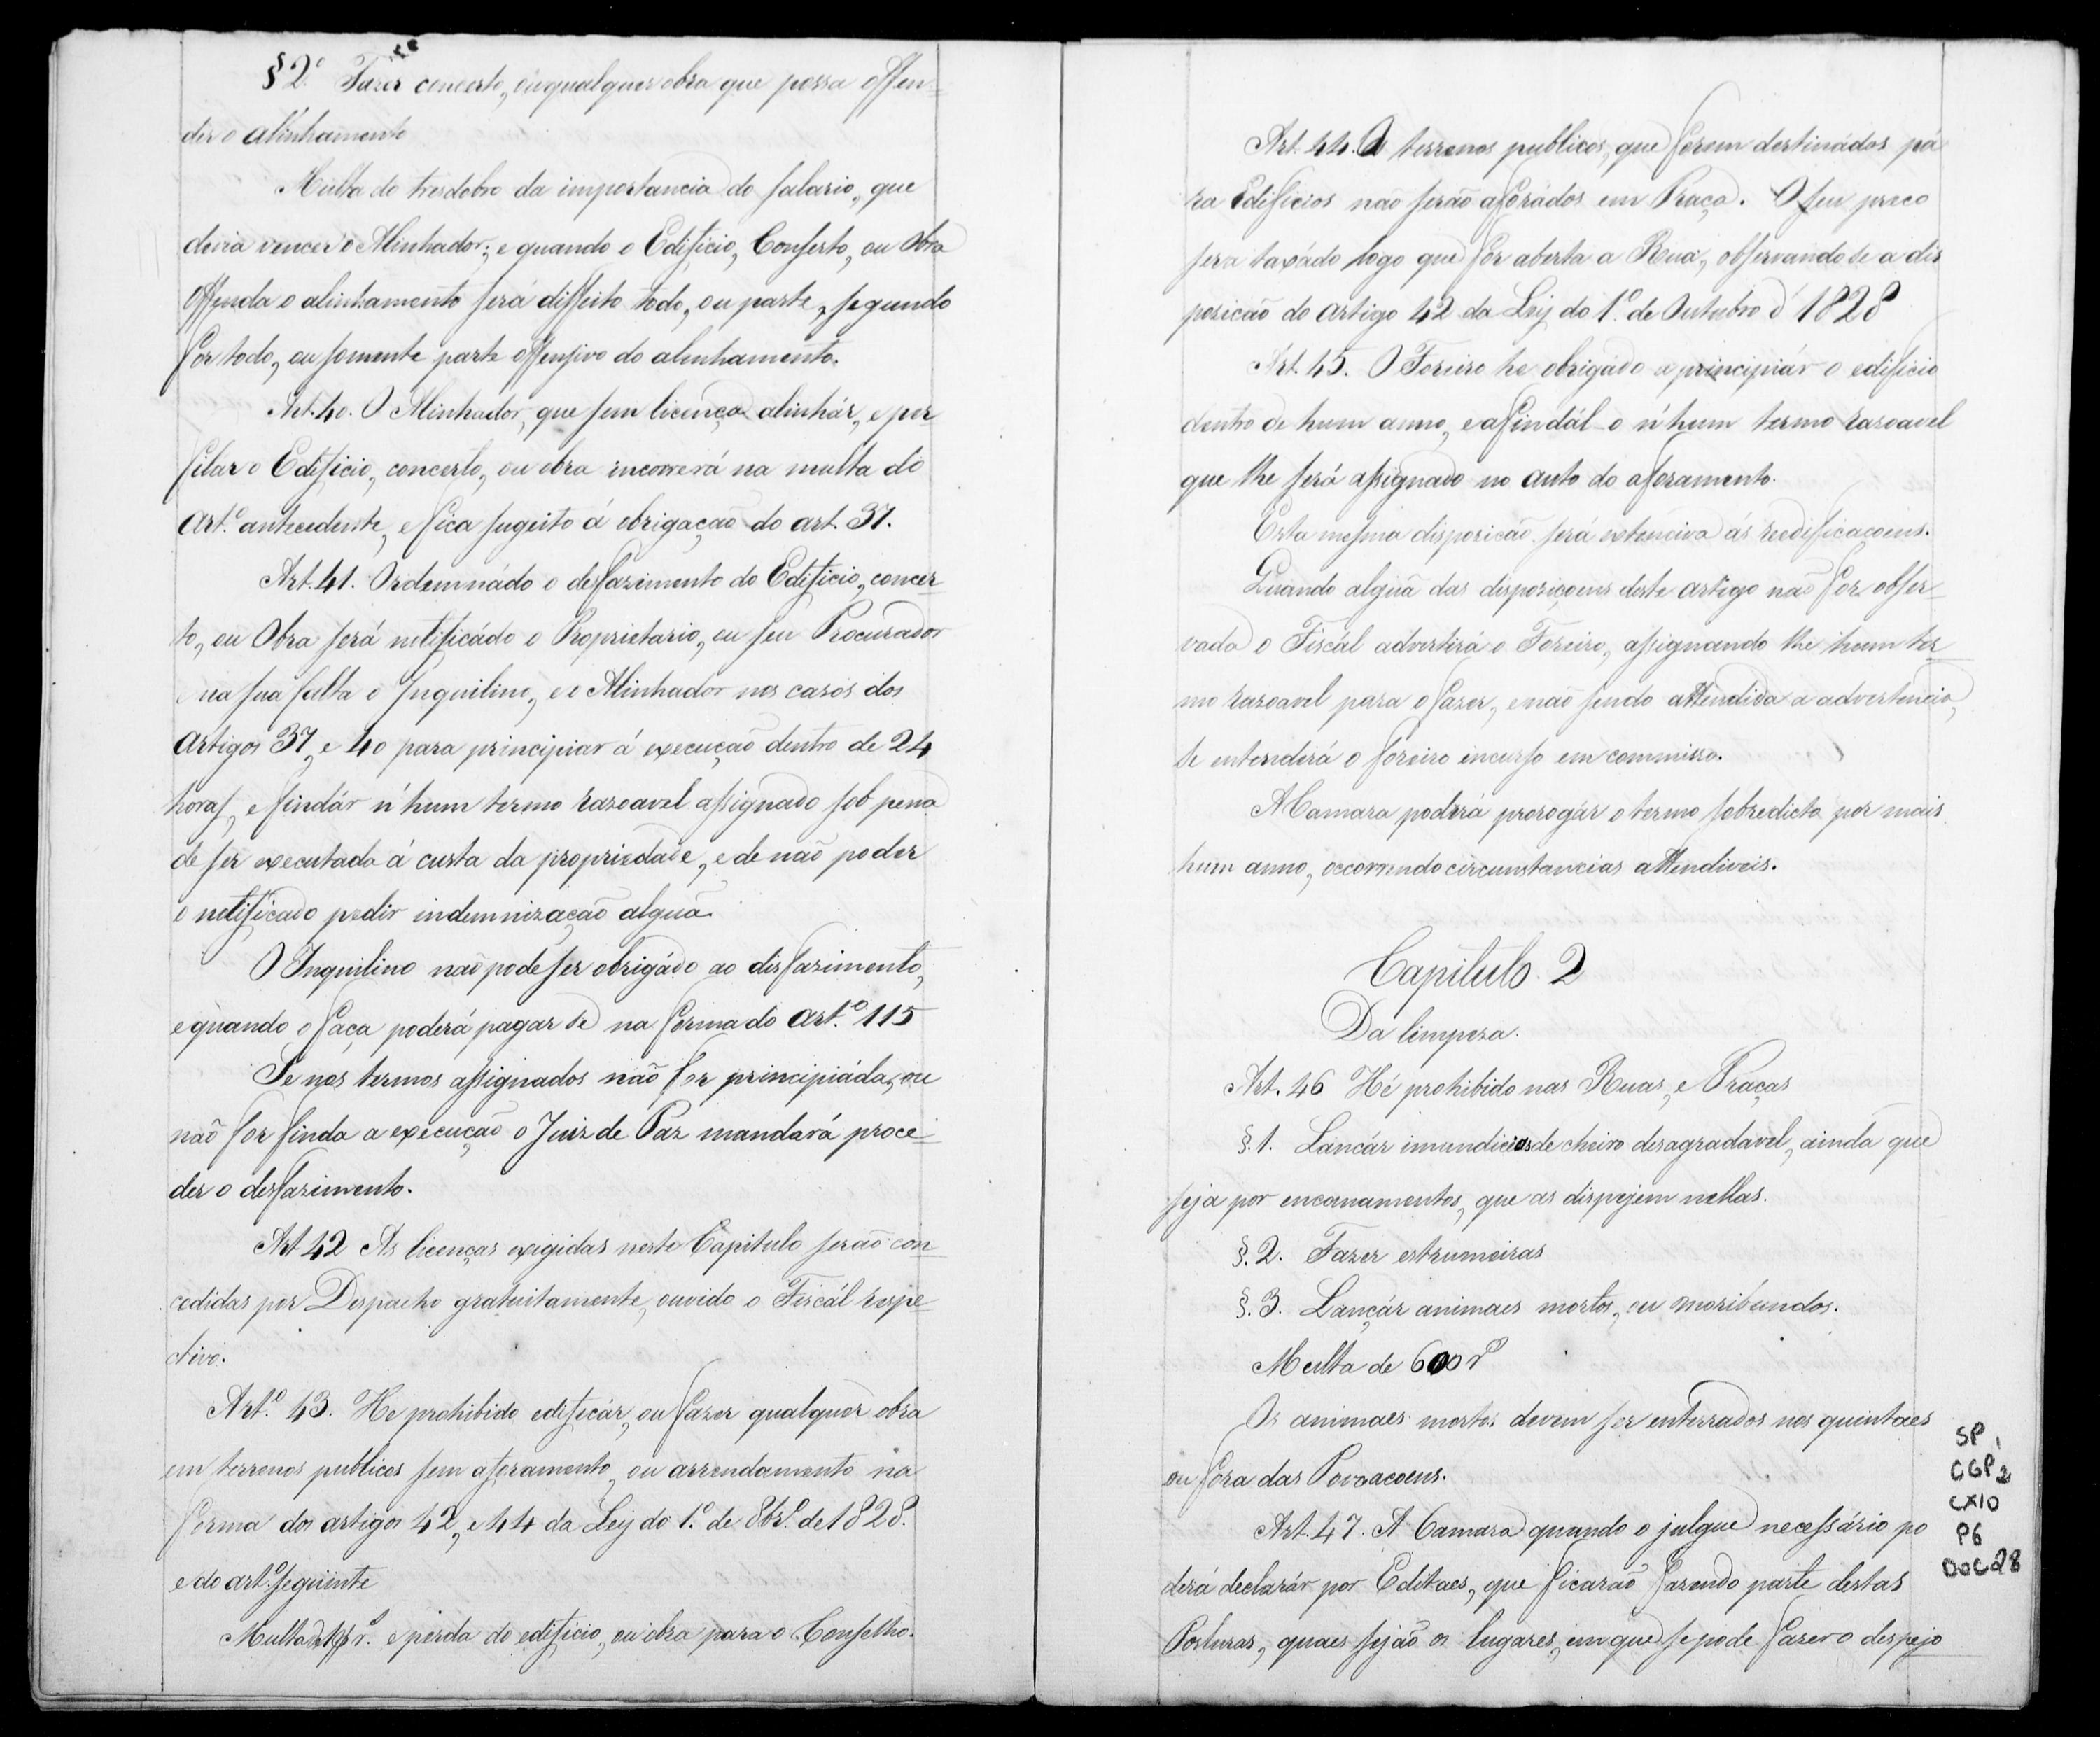 § 2.º Fazer concerto, ou qualquer obra que possa offen-
der o alinhamento
Multa do tresdobro da importancia do salario, que
devia vencer o Alinhador; e quando o Edificio, Conserto, ou Obra
Offenda o alinhamento será disfeito todo, ou parte, segundo
for todo, ou somente parte offensivo do alinhamento.
Art. 40. O Alinhador, que sem licença alinhár, e per
filar o Edificio, concerto, ou obra incorrerá na multa do
Art.º antecedente, e fica sugeito á obrigação do art. 37.
Art. 41. Ordemnádo o desfazimento do Edificio, concer-
to, ou Obra será notificádo o Proprietario, ou seu Procurador
na sua falta o Inquilino, e o Alinhador nos casos dos
Artigos 37, e 40 para principiar á execução dentro de 24
horas, e findár n'hum termo razoavel assignado sob pena
de ser executada á custa da propriedade, e de não poder
o notificado pedir indemnização alguã
O Inquilino não pode ser obrigádo ao disfazimento,
e quando o faça poderá pagar se na forma do Art.º 115
Se nos termos assignados não for principiáda, ou
não for finda a execução o Juiz de Paz mandará proce-
der o desfazimento.
Art 42 As licenças exigidas neste Capitulo serão con-
cedidas por Despacho gratuitamente, ouvido o Fiscál respe-
ctivo.
Art.º 43. He prohibido edificár, ou fazer qualquer obra
em terrenos publicos sem aforamento, ou arrendamento na
forma dos artigos 42, e 44 da Ley do 1.º de 8br.º de 1828.
e do art.º seguinte
Multa de r.º e perda do edificio, ou obra para o Conselho.
Art. 44. Os terrenos publicos, que forem destinádos pá
ra Edificios não serão aforádos em Praça. O seu preco
sera taxádo logo que for aberta a Rua, observando se a dis
posicão do artigo 42 da Ley do 1.º de Outubro d' 1828
Art. 45. O Foreiro he obrigádo a principiár o edificio
dentro de hum anno, e a findál-o n'hum termo razoavel
que lhe será assignado no auto do aforamento.
Esta mesma disposicão será extenciva ás reedificacoens.
Quando alguã das disposiçoens deste artigo não for obser-
vada o Fiscál advertirá o Foreiro, assignando lhe hum ter-
mo razoavel para o fazer, e não sendo attendida a advertencia,
se entenderá o foreiro incurso em commisso.
A Camara poderá prorogár o termo sobredicto por mais
hum anno, occorrendo circunstancias attendiveis.
Capitulo 2
Da limpeza.
Art. 46 Hé prohibido nas Ruas, e Praças
§. 1. Lancár imundicias de cheiro desagradavel, ainda que
seja por encanamentos, que as dispejem nellas.
§. 2. Fazer estrumeiras
§. 3. Lançár animaes mortos, ou moribundos.
Multa de 600 r.º
Os animaes mortos devem ser enterrados nos quintaes
ou fóra das Povoacoens.
Art. 47. A Camara quando o julgue necessário po
derá declarár por Editaes, que ficarão fazendo parte destas
Posturas, quaes sejão os lugares, em que se pode fazer o despejo
SP 1
CGP 2
CX10
P6
DOC28